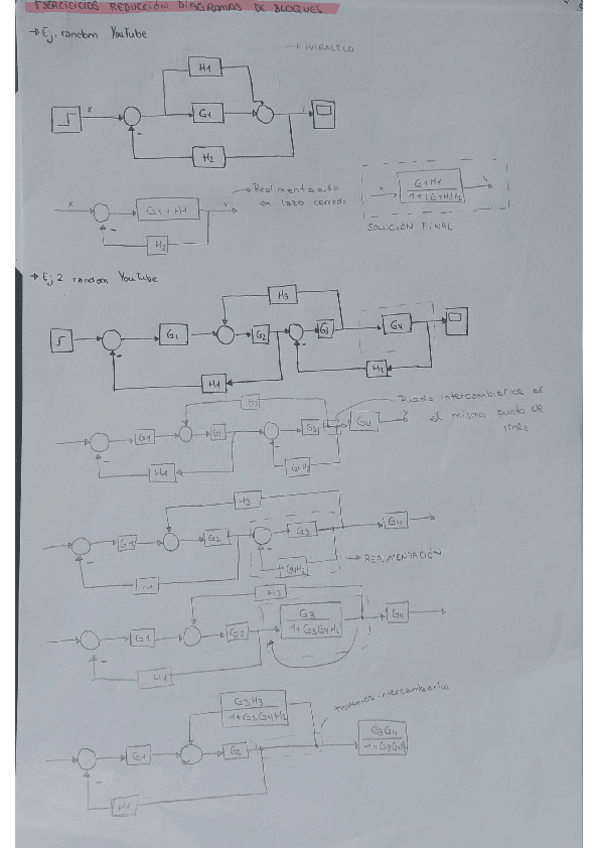 EJERCICIOS REDUCCIÓN DIAGRAMAS DE BLOQUES
→ Ej. random YouTube
→ PARALELO
H1
x
G1
y
-
H2
x
G1+H1
y
→ Realimentación
en lazo cerrado
-
H2
x
G+H1
1+(G+H1)H2
y
SOLUCIÓN FINAL
→ Ej 2 random YouTube
H3
G1
G2
G3
G4
-
-
H1
H2
H3
Puedo intercambiarlos es
el mismo punto de
línea
G1
G2
G3
G4
-
-
H1
G4H2
H3
G1
G2
G3
G4
-
-
H1
G4H2
→ REALIMENTACIÓN
H3
G1
G2
G3
1+G3G4H2
G4
-
H1
G3H3
1+G3G4H2
Podemos intercambiarlos
G1
G2
G3G4
-
H1